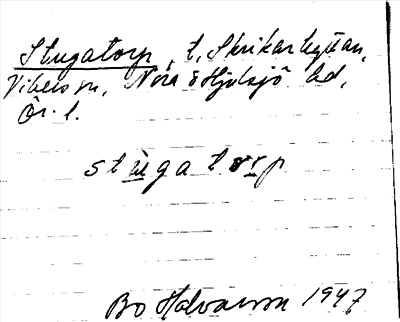 Stugatorp, t. Skrikartegäan,
Vibers sn, Nora o Hjulsjö hd,
Ör. l.
stùga torp
Bo Halvarson 1947